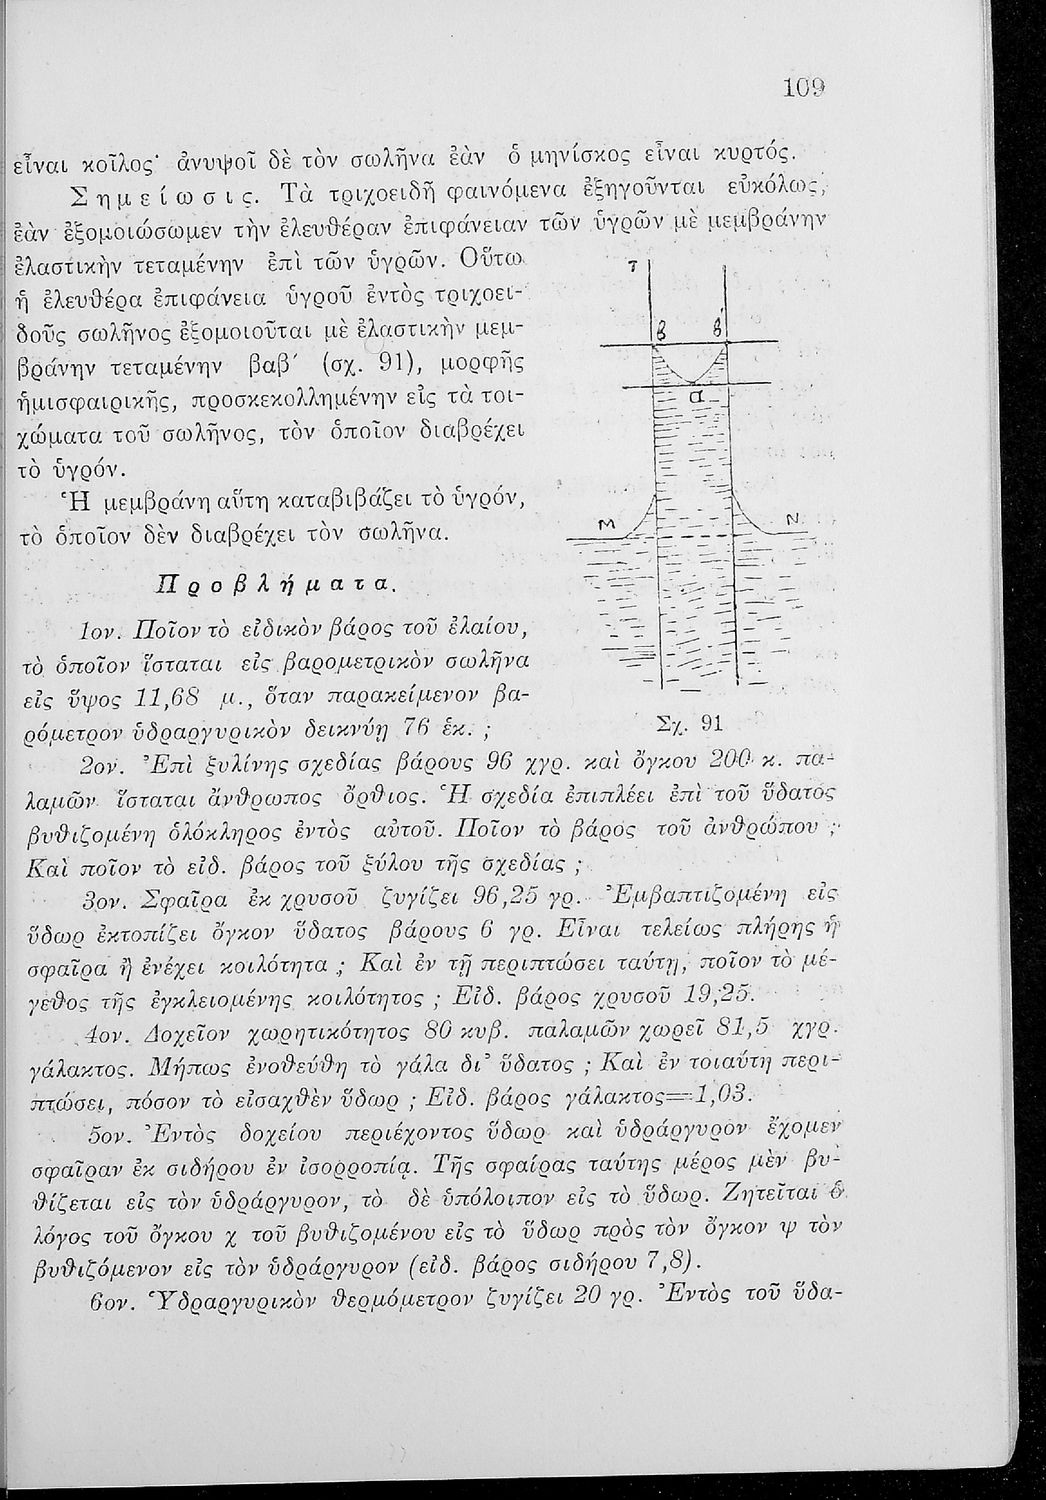 109
εἶναι κοῖλος· ἀνυψοῖ δὲ τὸν σωλῆνα ἐὰν ὁ μηνίσκος εἶναι κυρτός.
Σημείωσις. Τὰ τριχοειδῆ φαινόμενα ἐξηγοῦνται εὐκόλως,
ἐὰν ἐξομοιώσωμεν τὴν ἐλευθέραν ἐπιφάνειαν τῶν ὑγρῶν μὲ μεμβράνην
ἐλαστικὴν τεταμένην ἐπὶ τῶν ὑγρῶν. Οὕτω
ἡ ἐλευθέρα ἐπιφάνεια ὑγροῦ ἐντὸς τριχοει-
δοῦς σωλῆνος ἐξομοιοῦται μὲ ἐλαστικὴν μεμ-
βράνην τεταμένην βαβ′ (σχ. 91), μορφῆς
ἡμισφαιρικῆς, προσκεκολλημένην εἰς τὰ τοι-
χώματα τοῦ σωλῆνος, τὸν ὁποῖον διαβρέχει
τὸ ὑγρόν.
Ἡ μεμβράνη αὕτη καταβιβάζει τὸ ὑγρόν,
τὸ ὁποῖον δὲν διαβρέχει τὸν σωλῆνα.
τ
β β′
α
Μ Ν
Σχ. 91
Προβλήματα.
1ον. Ποῖον τὸ εἰδικὸν βάρος τοῦ ἐλαίου,
τὸ ὁποῖον ἵσταται εἰς βαρομετρικὸν σωλῆνα
εἰς ὕψος 11,68 μ., ὅταν παρακείμενον βα-
ρόμετρον ὑδραργυρικὸν δεικνύῃ 76 ἑκ. ;
2ον. Ἐπὶ ξυλίνης σχεδίας βάρους 96 χγρ. καὶ ὄγκου 200 κ. πα-
λαμῶν ἵσταται ἄνθρωπος ὄρθιος. Ἡ σχεδία ἐπιπλέει ἐπὶ τοῦ ὕδατος
βυθιζομένη ὁλόκληρος ἐντὸς αὐτοῦ. Ποῖον τὸ βάρος τοῦ ἀνθρώπου ;
Καὶ ποῖον τὸ εἰδ. βάρος τοῦ ξύλου τῆς σχεδίας ;
3ον. Σφαῖρα ἐκ χρυσοῦ ζυγίζει 96,25 γρ. Ἐμβαπτιζομένη εἰς
ὕδωρ ἐκτοπίζει ὄγκον ὕδατος βάρους 6 γρ. Εἶναι τελείως πλήρης ἡ
σφαῖρα ἢ ἐνέχει κοιλότητα ; Καὶ ἐν τῇ περιπτώσει ταύτῃ, ποῖον τὸ μέ-
γεθος τῆς ἐγκλειομένης κοιλότητος ; Εἰδ. βάρος χρυσοῦ 19,25.
4ον. Δοχεῖον χωρητικότητος 80 κυβ. παλαμῶν χωρεῖ 81,5 χγρ.
γάλακτος. Μήπως ἐνοθεύθη τὸ γάλα δι’ ὕδατος ; Καὶ ἐν τοιαύτῃ περι-
πτώσει, πόσον τὸ εἰσαχθὲν ὕδωρ ; Εἰδ. βάρος γάλακτος=1,03.
5ον. Ἐντὸς δοχείου περιέχοντος ὕδωρ καὶ ὑδράργυρον ἔχομεν
σφαῖραν ἐκ σιδήρου ἐν ἰσορροπίᾳ. Τῆς σφαίρας ταύτης μέρος μὲν βυ-
θίζεται εἰς τὸν ὑδράργυρον, τὸ δὲ ὑπόλοιπον εἰς τὸ ὕδωρ. Ζητεῖται ὁ
λόγος τοῦ ὄγκου χ τοῦ βυθιζομένου εἰς τὸ ὕδωρ πρὸς τὸν ὄγκον ψ τὸν
βυθιζόμενον εἰς τὸν ὑδράργυρον (εἰδ. βάρος σιδήρου 7,8).
6ον. Ὑδραργυρικὸν θερμόμετρον ζυγίζει 20 γρ. Ἐντὸς τοῦ ὕδα-